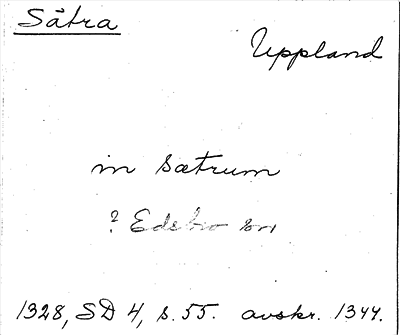 Sätra
Uppland
in Sætrum
? Edebo sn
1328, SD 4, s. 55. avskr. 1344.